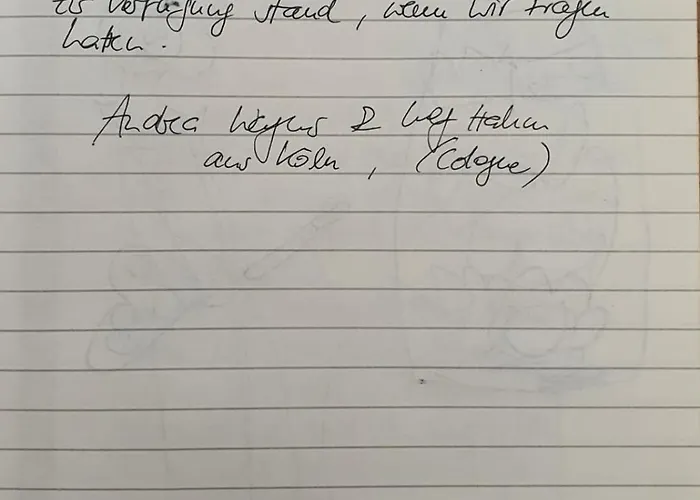 zur Verfügung stand, wenn wir Fragen
hatten.
Andrea & Hahn
aus Köln, (Cologne)